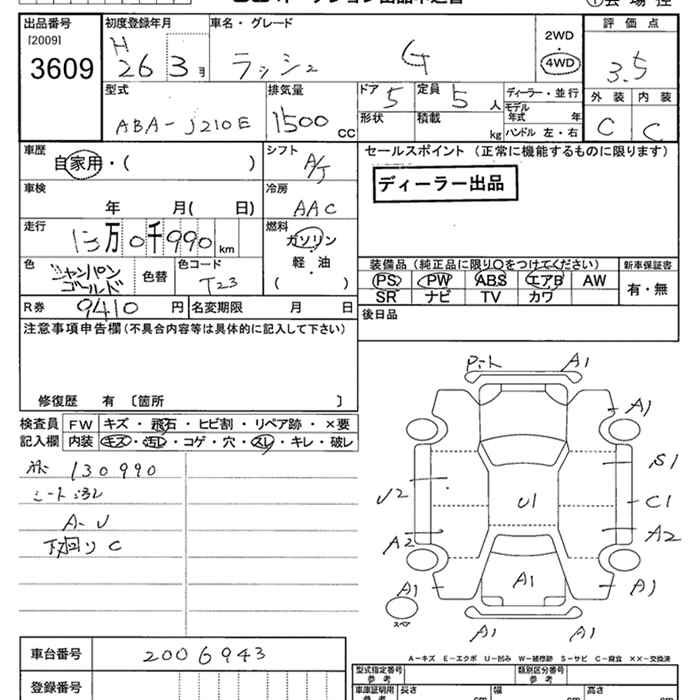 出品番号 初度登録年月 車名・グレード 2WD 評価点
[2009] H 4WD
3609 26 3月 ラッシュ G 3.5
型式 排気量 ドア 定員 ディーラー・並行 外装 内装
5 5人 モデル年式 年
ABA-J210E 1500cc 形状 積載 kg ハンドル 左・右 C C
車歴 シフト セールスポイント (正常に機能するものに限ります)
自家用・( ) A/T ディーラー出品
車検 冷房
年 月( 日) AAC
走行 燃料
13万0千990km ガソリン
色 シャンパンゴールド 色替 色コード T23 軽・油 装備品(純正品に限り○をつけてください) 新車保証書
( ) PS PW ABS エアB AW 有・無
R券 9410円 名変期限 月 日 SR ナビ TV カワ
注意事項申告欄(不具合内容等は具体的に記入して下さい) 後日品
修復歴 有〔箇所 〕
検査員 FW キズ・飛石・ヒビ割・リペア跡・×要
記入欄 内装 キズ・汚レ・コゲ・穴・スレ・キレ・破レ
130990
シート汚レ
A-U
下廻りC
A1
A1
S1
U2 U1 C1
A2 A2
A1 A1 A1
スペア
A1 A1
A-キズ E-エクボ U-凹み W-補修跡 S-サビ C-腐食 ××-交換済
車台番号 2006943 型式指定番号 参考 類別区分番号 参考
登録番号 車庫証明用 参考 長さ cm 幅 cm 高さ cm